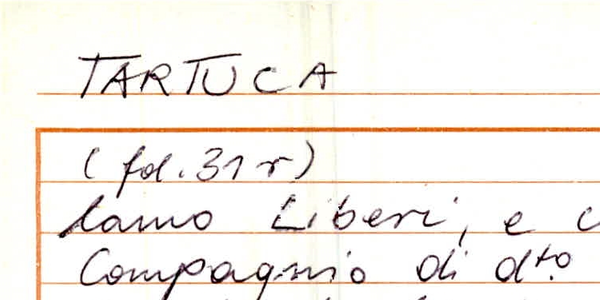 TARTUCA
(fol. 31 r)
lamo Liberi, e
Compagnio di d.to